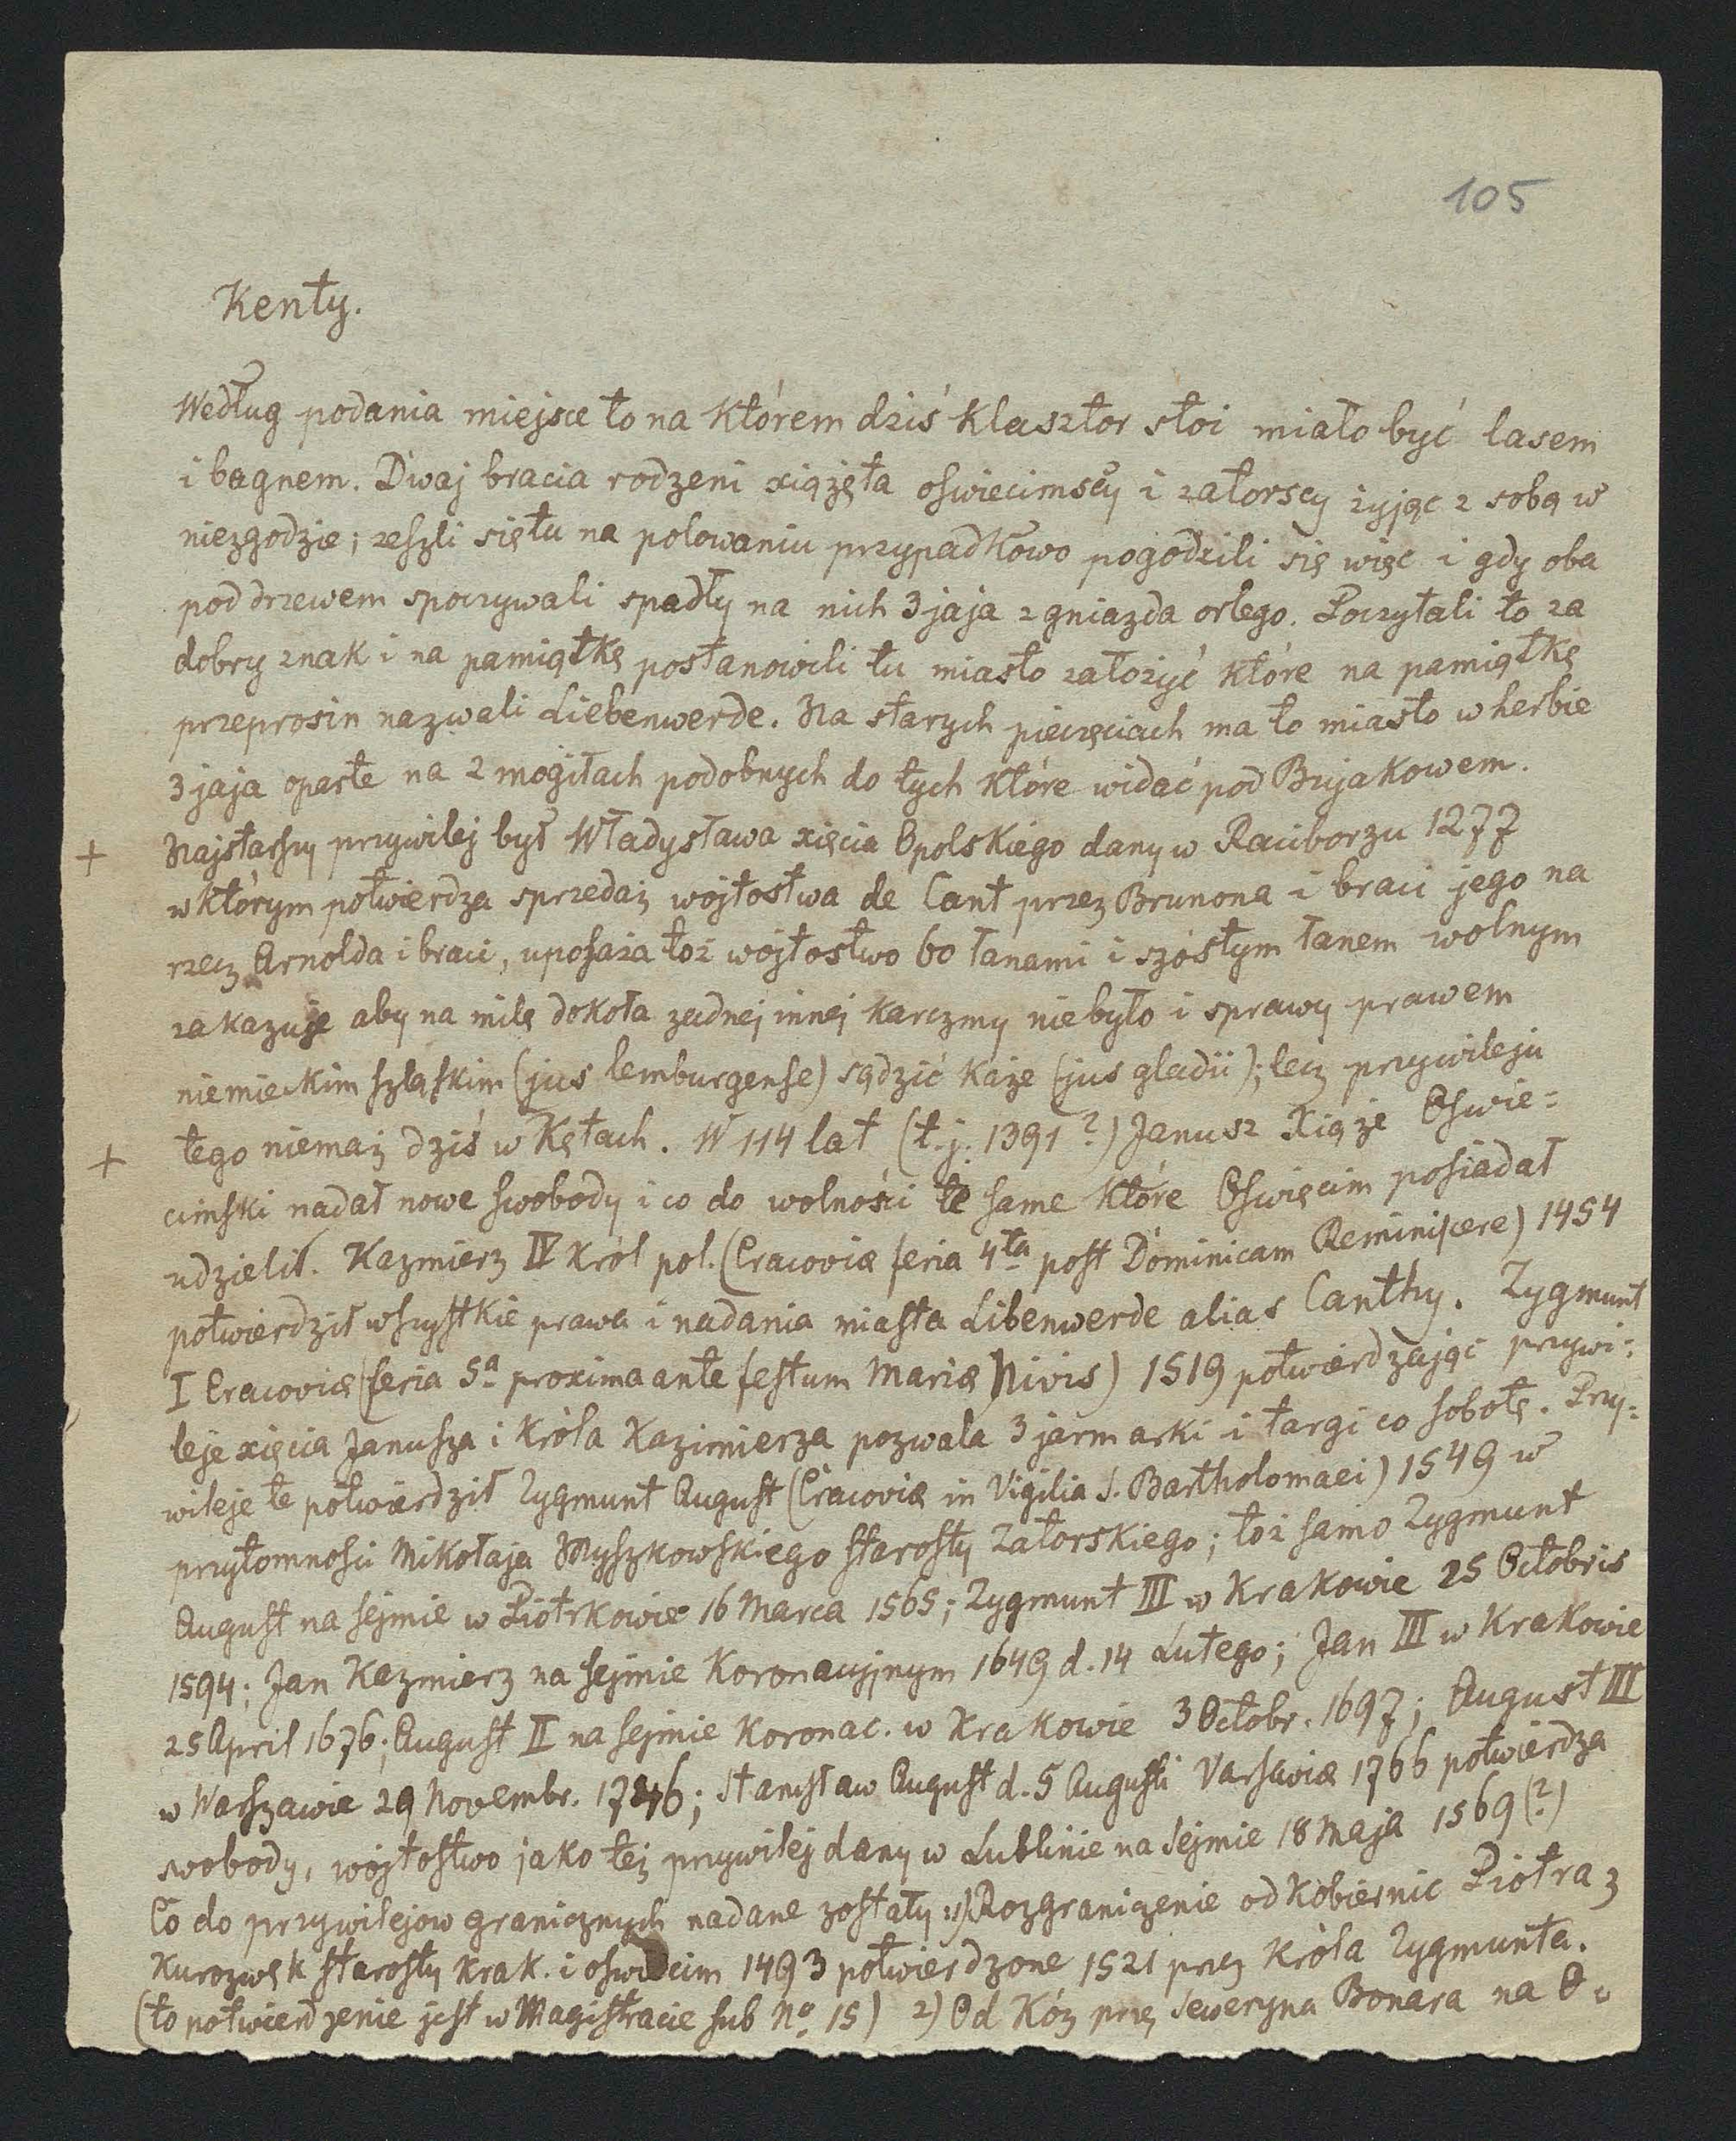 105
Kenty.
Według podania miejsce to na którem dziś klasztor stoi miało być lasem
i bagnem. Dwaj bracia rodzeni xiążęta oświecimscy i zatorscy żyjąc z sobą w
niezgodzie; zeszli się tu na polowaniu przypadkowo pogodzili się więc i gdy oba
pod drzewem spoczywali spadły na nich 3 jaja z gniazda orlego. Poczytali to za
dobry znak i na pamiątkę postanowili tu miasto założyć które na pamiątkę
przeprosin nazwali Liebenwerde. Na starych pieczęciach ma to miasto w herbie
3 jaja oparte na 2 mogiłach podobnych do tych które widać pod Bujakowem.
+ Najstarszy przywilej był Władysława xięcia Opolskiego dany w Raciborzu 1277
w którym potwierdza sprzedaż wójtostwa de Cant przez Brunona i braci jego na
rzecz Arnolda i braci, uposaża toż wójtostwo 60 łanami i szóstym łanem wolnym
zakazuje aby na milę dokoła żadnej innej karczmy niebyło i sprawy prawem
niemieckim szląskim (jus lemburgense) sądzić każe (jus gladii); lecz przywileju
+ tego niemaż dziś w Kętach. W 114 lat (t.j. 1391?) Janusz Xiąże Oświe=
cimski nadał nowe swobody i co do wolności te same które Oświęcim posiadał
udzielił. Kazmierz IV król pol. (Cracoviæ feria 4ta post Dominicam Reminiscere) 1454
potwierdził wszystkie prawa i nadania miasta Libenwerde alias Canthy. Zygmunt
I Cracoviæ (feria 5a proxima ante festum Mariæ Nivis) 1519 potwierdzając przywi=
leje xięcia Janusza i króla Kazimierza pozwala 3 jarmarki i targi co sobotę. Przy=
wileje te potwierdził Zygmunt August (Cracoviæ in Vigilia S. Bartholomaei) 1549 w
przytomności Mikołaja Myszkowskiego starosty Zatorskiego; toż samo Zygmunt
August na sejmie w Piotrkowie 16 Marca 1565; Zygmunt III w Krakowie 25 Octobris
1594; Jan Kazmierz na sejmie Koronacyjnym 1649 d. 14 Lutego; Jan III w Krakowie
25 April 1676; August II na sejmie Koronac. w Krakowie 3 Octobr. 1697; August III
w Warszawie 29 Novembr. 1746; Stanisław August d. 5 Augusti Varsaviæ 1766 potwierdza
swobody, wójtostwo jako też przywilej dany w Lublinie na Sejmie 18 Maja 1569 (?)
Co do przywilejow granicznych nadane zostały: 1) Rozgraniczenie od Kobiernic Piotra z
Kurozwęk starosty krak. i oświecim 1493 potwierdzone 1521 przez króla Zygmunta.
(to potwierdzenie jest w Magistracie sub No 15) 2) Od Kóz przez Seweryna Bonara na